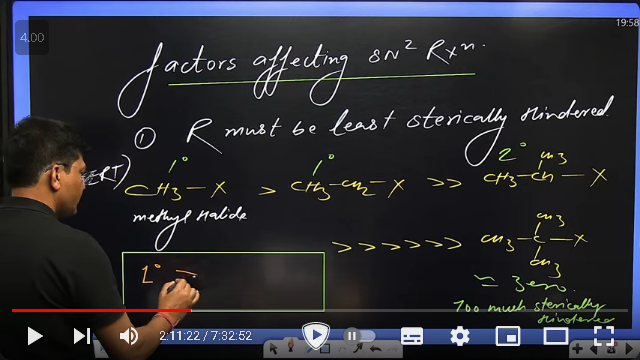 4.00
19:58
factors affecting SN² Rxⁿ.
① R must be least sterically Hindered
1° 1° 2°
CH3
CH3-X > CH3-CH2-X >> CH3-CH-X
methyl Halide
CH3
>>>>>>> CH3-C-X
CH3
≈ Zero
1° -
Too much sterically
Hindered
2:11:22 / 7:32:52